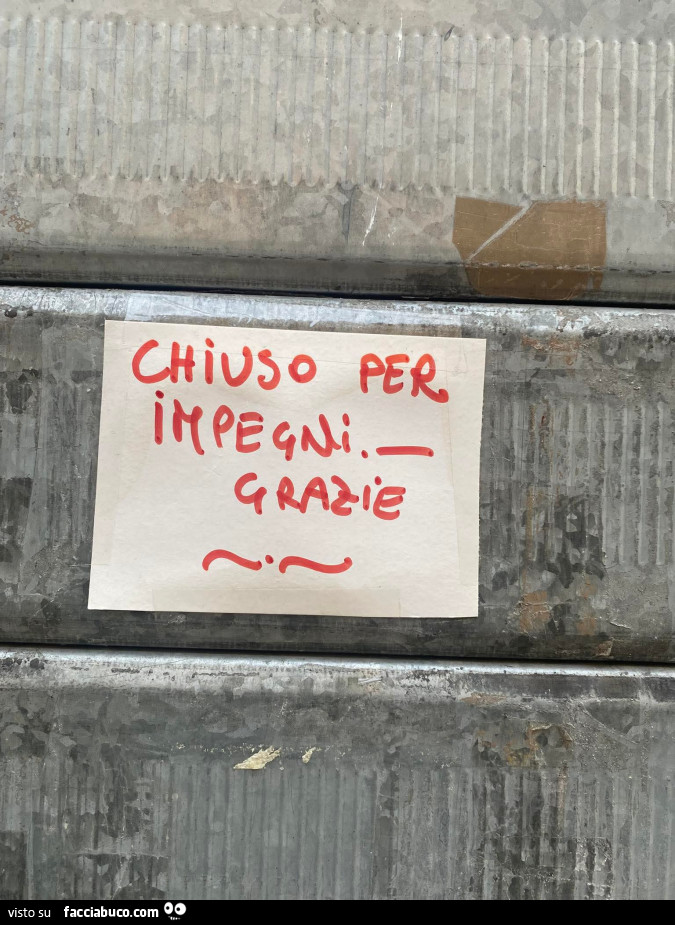 CHiUSO PER
iMPEGNi. —
GRAZiE
~.~
visto su facciabuco.com